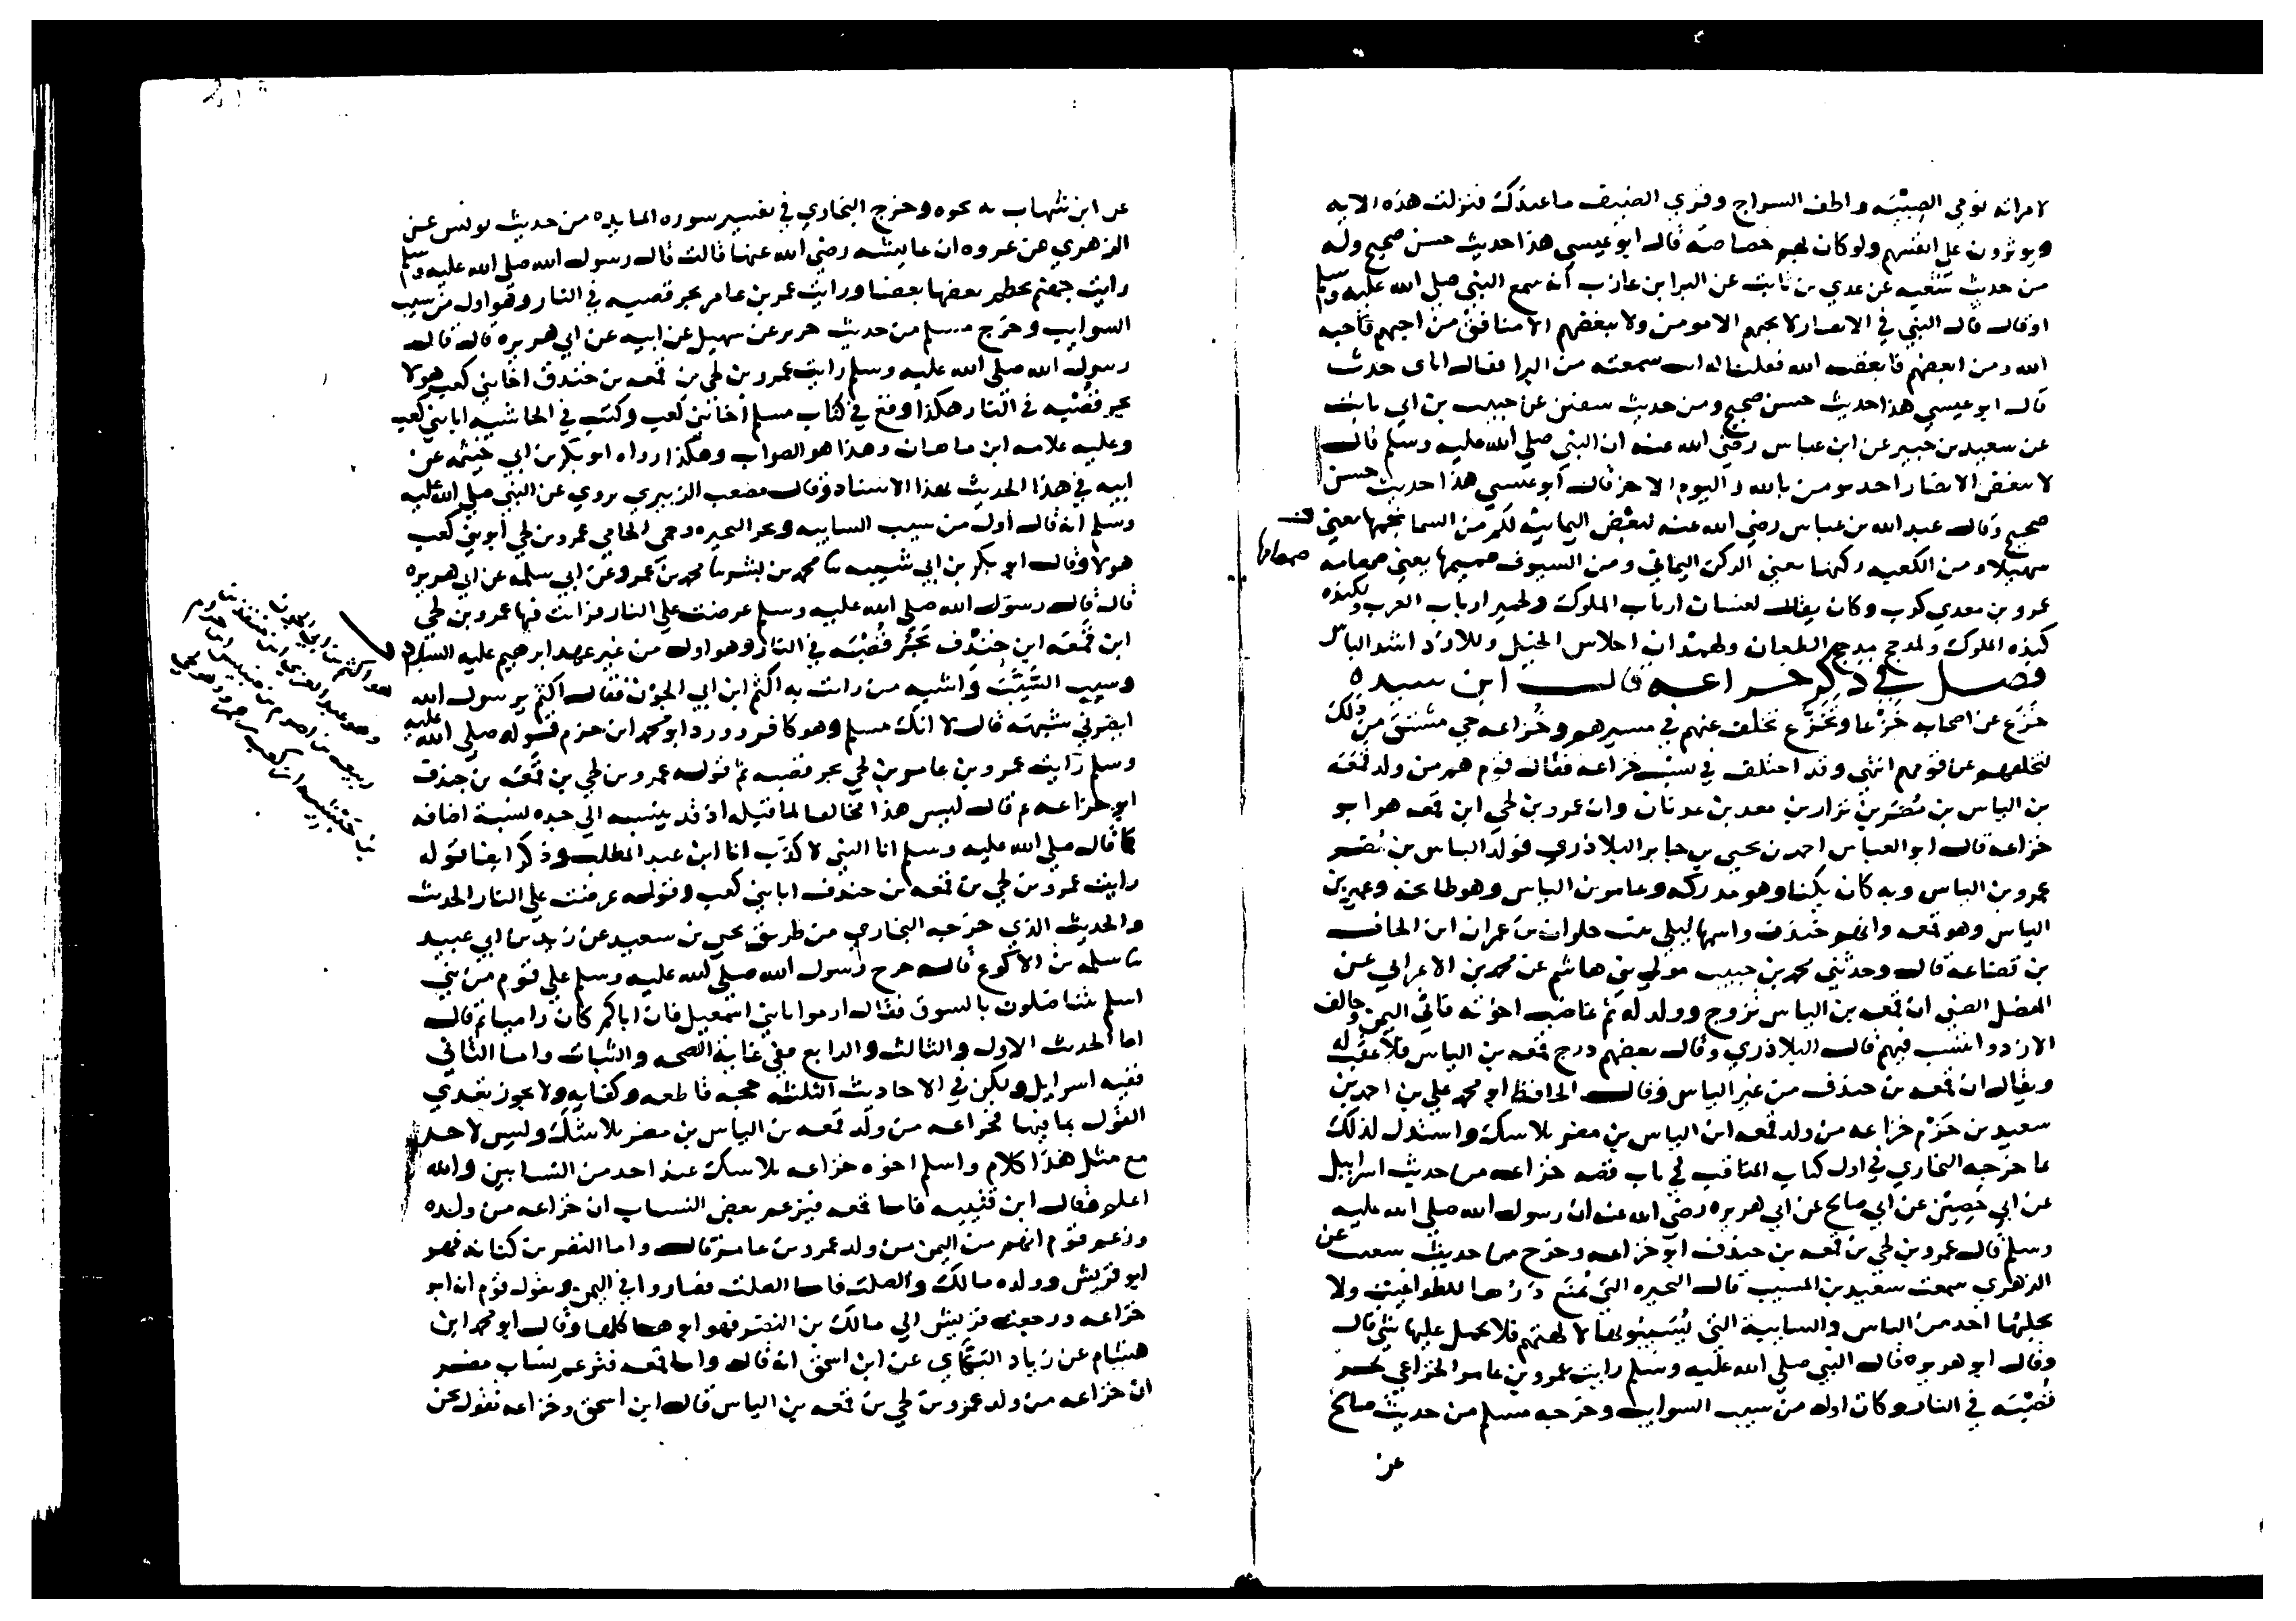 لامراته نومي الصبية واطف السراج وقربي الضيف ما عندك فنزلت هذه الايه
ويوثرون على انفسهم ولو كان بهم خصاصة قال ابو عيسى هذا حديث حسن صحيح وله
من حديث شعبه عن عدي بن ثابت عن البرا بن عازب انه سمع النبي صلى الله عليه وسلم
او قال قال النبي في الانصار لا يحبهم الا مومن ولا يبغضهم الا منافق من احبهم فاحبه
الله ومن ابغضهم فابغضه الله فقلنا له انت سمعته من البرا فقال اياى حدث
قال ابو عيسى هذا حديث حسن صحيح ومن حديث سفين عن حبيب بن ابي ثابت
عن سعيد بن جبير عن ابن عباس رضي الله عنه ان النبي صلى الله عليه وسلم قال
لا يبغض الانصار احد يومن بالله واليوم الاخر قال ابو عيسى هذا حديث حسن
صحيح وقال عبد الله بن عباس رضي الله عنه لبعض اليمانية لكم من السما نجمها يعني
سهيلا ومن الكعبه ركنها يعني الركن اليماني ومن السيوف صميمها يعني صمصامة
صمصامها
عمرو بن معدي كرب وكان يقال لغسان ارباب الملوك ولحمير ارباب العرب ولكنده
كنده الملوك ولمذحج مذحج الطعان ولهمدان احلاس الخيل وللازد اشد الباس
فصل في ذكر خزاعه قال ابن سيده
خزع عن اصحابه خزعا وتخزع تخلف عنهم في مسيرهم وخزاعه حي مشتق من ذلك
لتخلفهم عن قومهم انتهى وقد اختلف في نسب خزاعه فقال قوم هم من ولد قمعه
بن الياس بن مضر بن نزار بن معد بن عدنان وان عمرو بن لحي ابن قمعه هو ابو
خزاعه قال ابو العباس احمد بن يحيى بن جابر البلاذري فولد الياس بن مضر
عمرو بن الياس وبه كان يكنا وهو مدركه وعامر بن الياس وهو طابخه وعمير بن
الياس وهو قمعه وامهم خندف واسمها ليلى بنت حلوان بن عمران ابن الحاف
بن قضاعه قال وحدثني محمد بن حبيب مولى بني هاشم عن محمد بن الاعرابي عن
المفضل الضبي ان قمعه بن الياس تزوج وولد له ثم غاضب اخوته فاتى اليمن وحالف
الازد وانتسب فيهم قال البلاذري وقال بعضهم درج قمعه بن الياس فلا عقب له
ويقال ان قمعه بن خندف من غير الياس وقال الحافظ ابو محمد علي بن احمد بن
سعيد بن حزم خزاعه من ولد قمعه ابن الياس بن مضر بلا شك واستدل لذلك
بما خرجه البخاري في اول كتاب المناقب في باب قصه خزاعه من حديث اسرايل
عن ابي حصين عن ابي صالح عن ابي هريره رضي الله عنه ان رسول الله صلى الله عليه
وسلم قال عمرو بن لحي بن قمعه بن خندف ابو خزاعه وخرج من حديث شعيب عن
الزهري سمعت سعيد بن المسيب قال البحيره التي يمنع درها للطواغيت ولا
يحلبها احد من الناس والسايبة التي يسيبونها لالهتهم فلا يحمل عليها شي قال
وقال ابو هريره قال النبي صلى الله عليه وسلم رايت عمرو بن عامر الخزاعي يجر
قصبه في النار وكان اول من سيب السوايب وخرجه مسلم من حديث صالح
عن
عن ابن شهاب به نحوه وخرج البخاري في تفسير سوره المايده من حديث يونس عن
الزهري عن عروه ان عايشه رضي الله عنها قالت قال رسول الله صلى الله عليه وسلم
رايت جهنم يحطم بعضها بعضا ورايت عمرو بن عامر يجر قصبه في النار وهو اول من سيب
السوايب وخرج مسلم من حديث جرير عن سهيل عن ابيه عن ابي هريره قال قال
رسول الله صلى الله عليه وسلم رايت عمرو بن لحي بن قمعه بن خندف اخا بني كعب هولا
يجر قصبه في النار هكذا وقع في كتاب مسلم اخا بني كعب وكتب في الحاشيه ابا بني كعب
وعليه علامه ابن ماهان وهذا هو الصواب وهكذا رواه ابو بكر بن ابي خيثمه عن
ابيه في هذا الحديث بهذا الاسناد وقال مصعب الزبيري يروي عن النبي صلى الله عليه
وسلم انه قال اول من سيب السايبه وبحر البحيره وحمى الحامي عمرو بن لحي ابو بني كعب
هولا وقال ابو بكر بن ابي شيبه نا محمد بن بشر نا محمد بن عمرو عن ابي سلمه عن ابي هريره
قال قال رسول الله صلى الله عليه وسلم عرضت علي النار فرايت فيها عمرو بن لحي
ابن قمعه ابن خندف يجر قصبه في النار وهو اول من غير عهد ابرهيم عليه السلام
وسيب السيب واشبه من رايت به اكثم ابن ابي الجون فقال اكثم يرسول الله
ايضرني شبهه قال لا انك مسلم وهو كافر وورد ابو محمد ابن حزم قوله صلى الله عليه
وسلم رايت عمرو بن عامر بن لحي يجر قصبه ثم قوله عمرو بن لحي بن قمعه بن خندف
ابو خزاعه م قال ليس هذا مخالفا لما قبله اذ قد ينسبه الى جده لنسبة اضافه
كما قال صلى الله عليه وسلم انا النبي لا كذب انا ابن عبد المطلب وذكر ايضا قوله
رايت عمرو بن لحي بن قمعه بن خندف ابا بني كعب وقوله عرضت علي النار الحديث
والحديث الذي خرجه البخاري من طريق يحيى بن سعيد عن زيد بن ابي عبيد
نا سلمه بن الاكوع قال خرج رسول الله صلى الله عليه وسلم على قوم من بني
اسلم يتناضلون بالسوق فقال ارموا يا بني اسمعيل فان اباكم كان راميا ثم قال
اما الحديث الاول والثالث والرابع ففي غاية الصحه والثبات واما الثاني
ففيه اسرايل ولكن في الاحاديث الثلثه حجه قاطعه وكفايه ولا يجوز تعدي
القول بما فيها فخزاعه من ولد قمعه بن الياس بن مضر بلا شك وليس لاحد
مع مثل هذا كلام واسلم اخوه خزاعه بلا شك عند احد من النسابين والله
اعلم وقال ابن قتيبه فاما قمعه فيزعم بعض النساب ان خزاعه من ولده
وزعم قوم انهم من اليمن من ولد عمرو بن عامر قال واما النضر بن كنانه فهو
ابو قريش وولده مالك والصلت فاما الصلت فصاروا في اليمن ويقول قوم انه ابو
خزاعه ورجعت قريش الى مالك بن النضر فهو ابوها كلها وقال ابو محمد ابن
هشام عن زياد البكاي عن ابن اسحق انه قال واما قمعه فتزعم نساب مضر
ان خزاعه من ولد عمرو بن لحي بن قمعه بن الياس قال ابن اسحق وخزاعه تقول نحن
هو اكثم بن ابي الجون